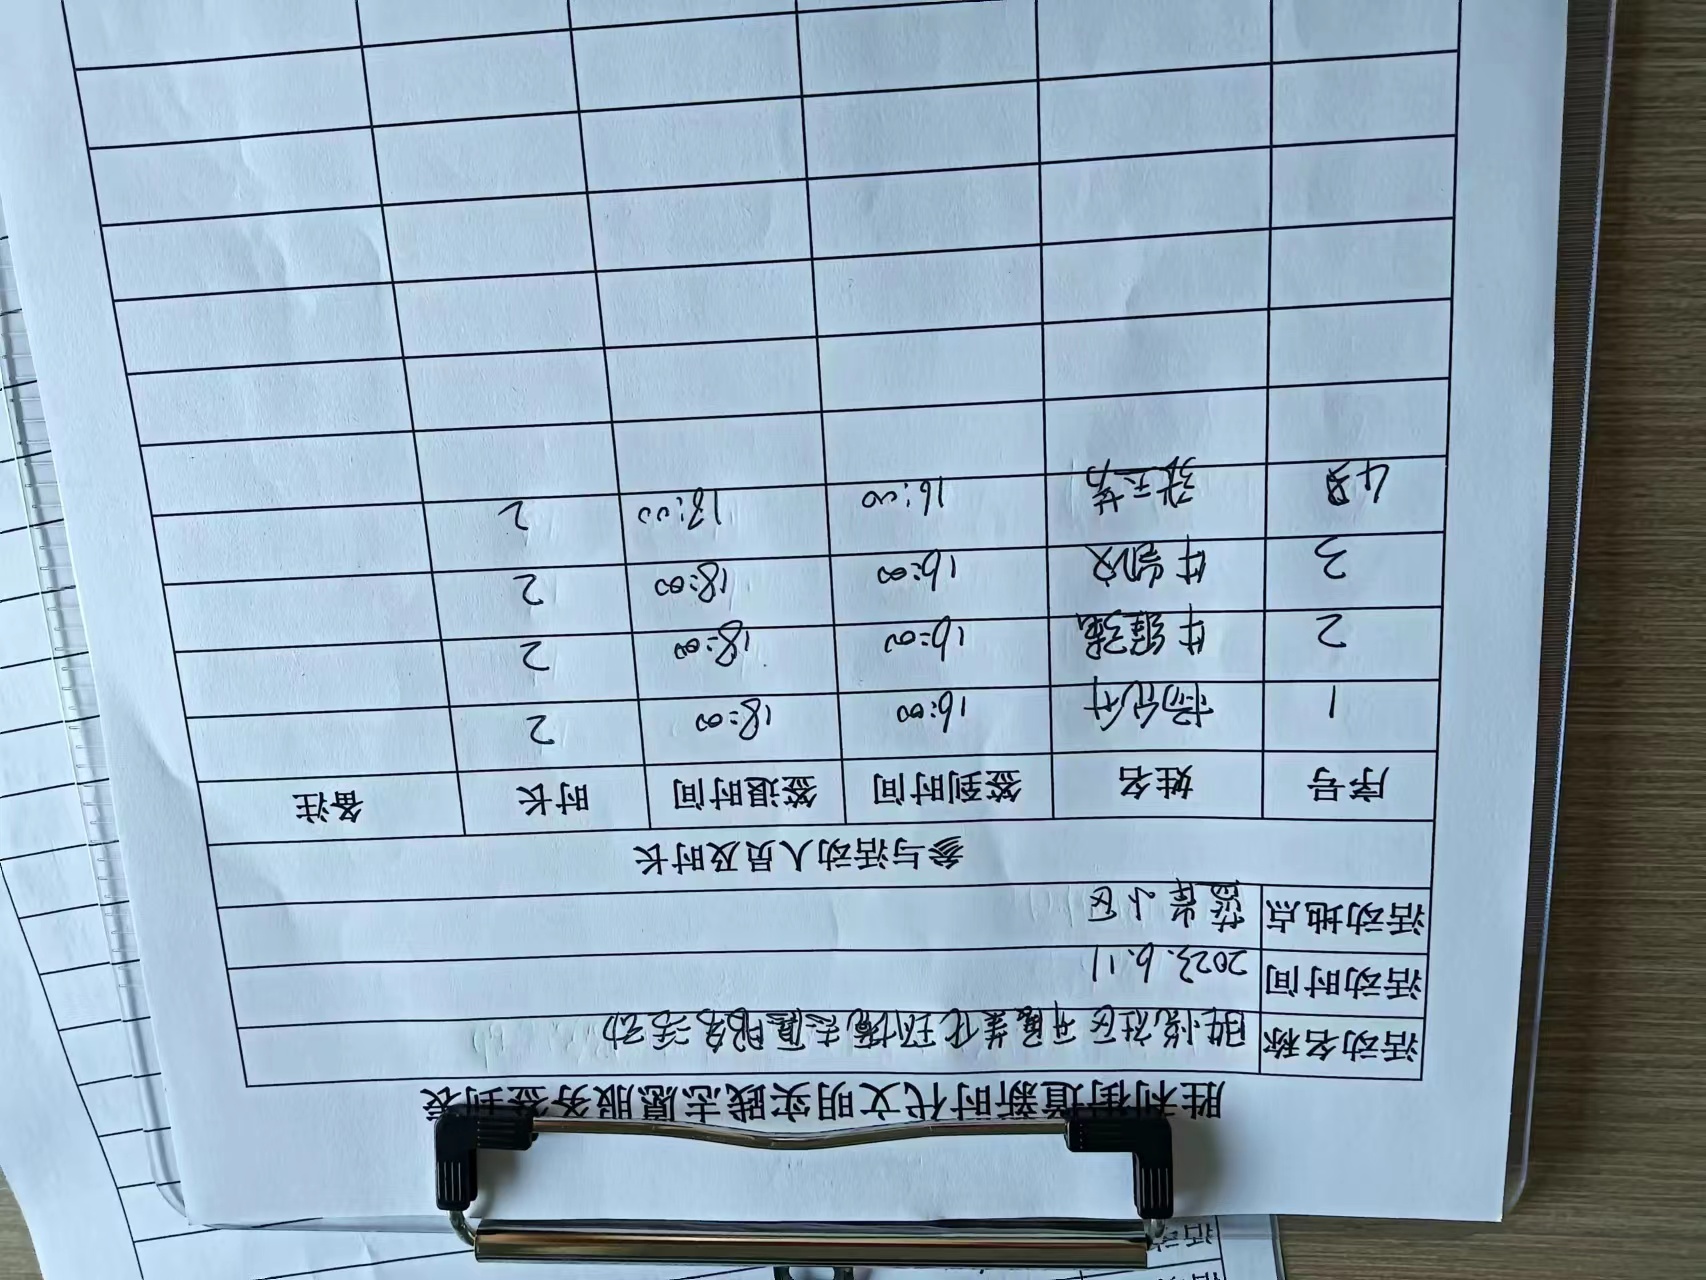 胜利街道新时代文明实践志愿服务签到表
活动名称 胜悦社区开展美化环境志愿服务活动
活动时间 2023.6.11
活动地点 蓝岸小区
参与活动人员及时长
序号 姓名 签到时间 签退时间 时长 备注
1 16:00 18:00 2
2 牛维强 16:00 18:00 2
3 牛凯文 16:00 18:00 2
4 16:00 18:00 2